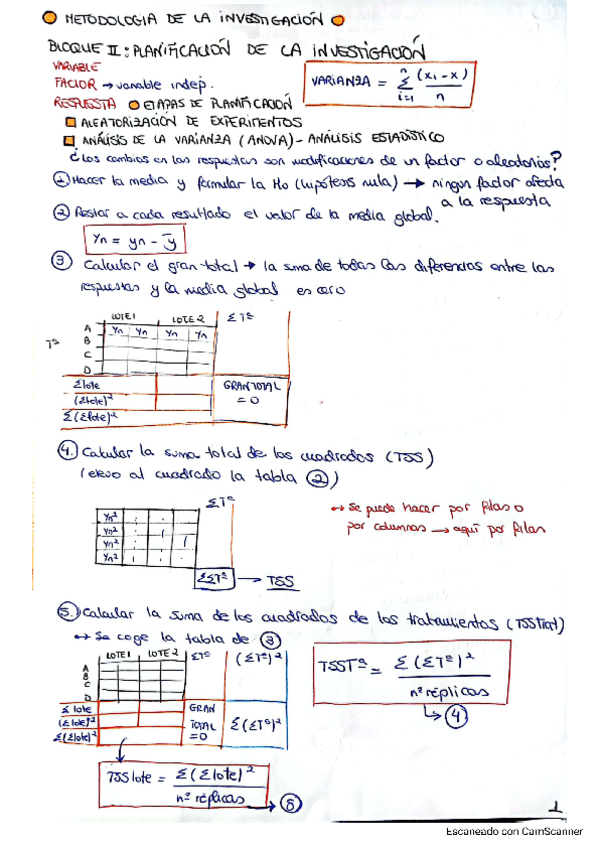 METODOLOGIA DE LA INVESTIGACIÓN
BLOQUE II: PLANIFICACIÓN DE LA INVESTIGACIÓN
VARIABLE
FACTOR → variable indep.
VARIANZA = Σ (x₁ - x) / n
n
i=1
RESPUESTA ETAPAS DE PLANIFICACIÓN
ALEATORIZACIÓN DE EXPERIMENTOS
ANÁLISIS DE LA VARIANZA (ANOVA) - ANÁLISIS ESTADÍSTICO
¿Los cambios en las respuestas son modificaciones de un factor o aleatorios?
① Hacer la media y formular la Ho (hipótesis nula) → ningun factor afecta
a la respuesta
② Restar a cada resultado el valor de la media global.
Yn = yn - y̅
③ Calcular el gran total → la suma de todas las diferencias entre las
respuestas y la media global es cero
LOTE1 LOTE2 ΣTª
A Yn Yn Yn Yn
B
Tª
C
D
Σlote GRAN TOTAL
(Σlote)² = 0
Σ(Σlote)²
4. Calcular la suma total de los cuadrados (TSS)
(elevo al cuadrado la tabla ②)
ΣTª
→ Se puede hacer por filas o
por columnas → aquí por filas
Yn²
Yn²
Yn²
Yn²
ΣΣTª → TSS
5. Calcular la suma de los cuadrados de los tratamientos (TSSTrat)
→ Se coge la tabla de ③
LOTE1 LOTE2 ΣTª (ΣTª)²
A
B
C
D
TSSTª = Σ(ΣTª)² / nº réplicas
→ ④
Σ lote GRAN
(Σlote)² TOTAL Σ(ΣTª)²
Σ(Σlote)² =0
TSS lote = Σ(Σlote)² / nº réplicas → ⑤
1
Escaneado con CamScanner